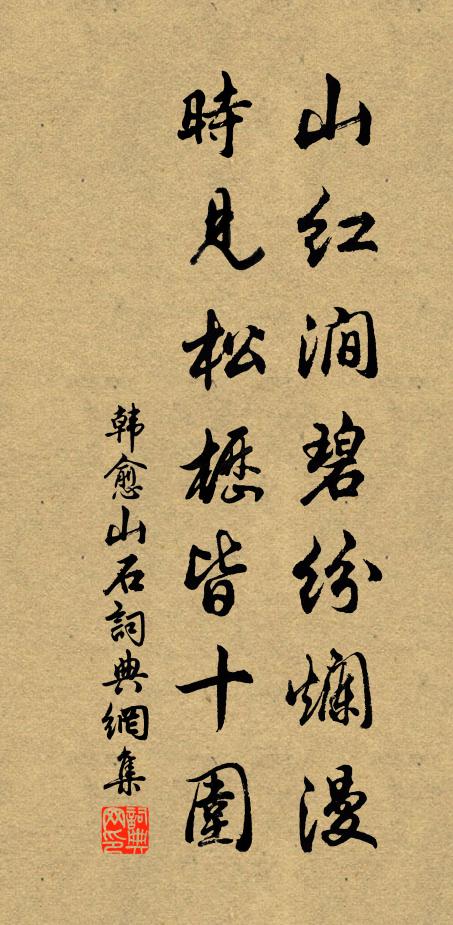 山红澗碧紛爛漫
時見松櫪皆十圍
韩愈山石詞典網集
詞典网印